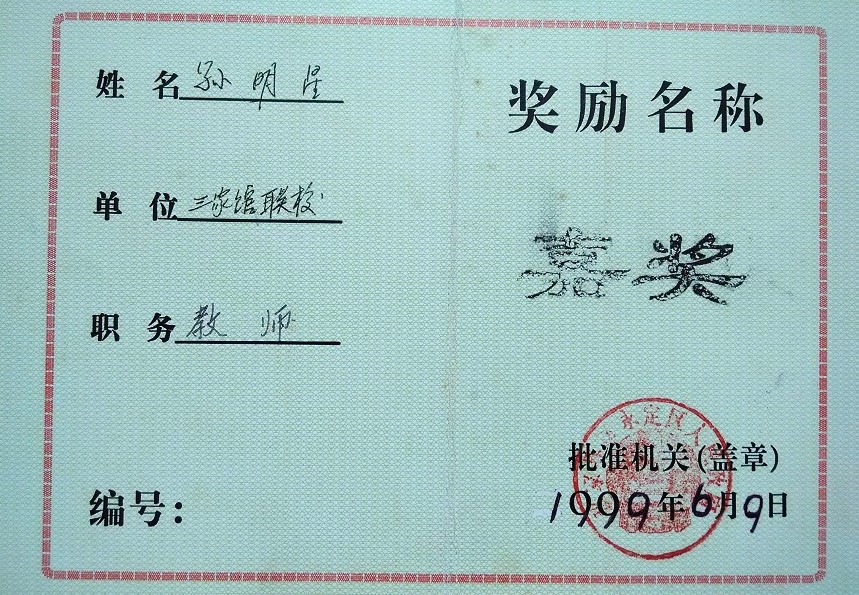 姓名 孙明星
单位 三家馆联校
职务 教师
编号：
奖励名称
嘉奖
永定区人
批准机关(盖章)
1999年6月9日